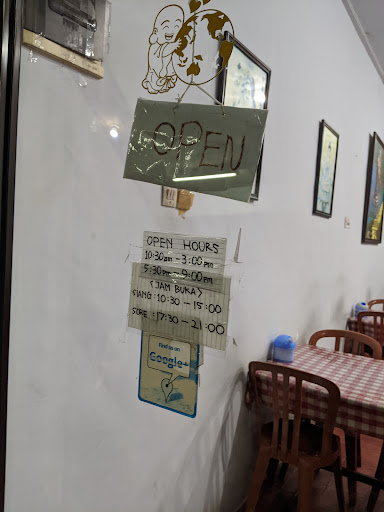 OPEN
OPEN HOURS
10:30am - 3:00pm
5:30pm - 9:00pm
<JAM BUKA>
SIANG: 10:30 - 15:00
SORE: 17:30 - 21:00
Find us on
Google+